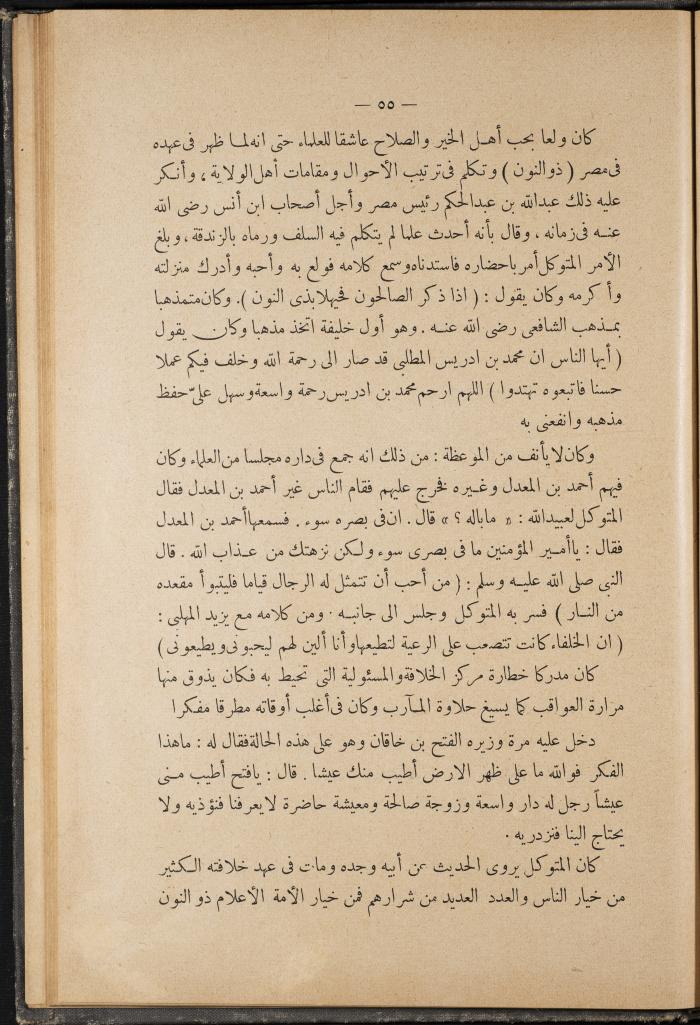 — ٥٥ —
كان ولعا بحب أهل الخير والصلاح عاشقا للعلماء حتى انه لما ظهر فى عهده
فى مصر ( ذو النون ) وتكلم فى ترتيب الأحوال ومقامات أهل الولاية ، وأنكر
عليه ذلك عبدالله بن عبدالحكم رئيس مصر وأجل أصحاب ابن أنس رضى الله
عنه فى زمانه ، وقال بأنه أحدث علما لم يتكلم فيه السلف ورماه بالزندقة ، وبلغ
الأمر المتوكل أمر باحضاره فاستدناه وسمع كلامه فولع به وأحبه وأدرك منزلته
وأكرمه وكان يقول : ( اذا ذكر الصالحون فحيهلا بذى النون ). وكان متمذهبا
بمذهب الشافعى رضى الله عنه . وهو أول خليفة اتخذ مذهبا وكان يقول
( أيها الناس ان محمد بن ادريس المطلبى قد صار الى رحمة الله وخلف فيكم عملا
حسنا فاتبعوه تهتدوا ) اللهم ارحم محمد بن ادريس رحمة واسعة وسهل علىّ حفظ
مذهبه وانفعنى به
وكان لا يأنف من الموعظة : من ذلك انه جمع فى داره مجلسا من العلماء وكان
فيهم أحمد بن المعدل وغيره فخرج عليهم فقام الناس غير أحمد بن المعدل فقال
المتوكل لعبيدالله : « ماباله ؟ » قال . ان فى بصره سوء . فسمعها أحمد بن المعدل
فقال : ياأمير المؤمنين ما فى بصرى سوء ولكن نزهتك من عذاب الله . قال
النبى صلى الله عليه وسلم : ( من أحب أن تتمثل له الرجال قياما فليتبوأ مقعده
من النار ) فسر به المتوكل وجلس الى جانبه . ومن كلامه مع يزيد المهلبى :
( ان الخلفاء كانت تتصعب على الرعية لتطيعها وأنا ألين لهم ليحبونى ويطيعونى )
كان مدركا خطارة مركز الخلافة والمسئولية التى تحيط به فكان يذوق منها
مرارة العواقب كما يسيغ حلاوة المآرب وكان فى أغلب أوقاته مطرقا مفكرا
دخل عليه مرة وزيره الفتح بن خاقان وهو على هذه الحالة فقال له : ماهذا
الفكر فوالله ما على ظهر الارض أطيب منك عيشا . قال : يافتح أطيب منى
عيشاً رجل له دار واسعة وزوجة صالحة ومعيشة حاضرة لايعرفنا فنؤذيه ولا
يحتاج الينا فنزدريه .
كان المتوكل يروى الحديث عن أبيه وجده ومات فى عهد خلافته الكثير
من خيار الناس والعدد العديد من شرارهم فمن خيار الأمة الأعلام ذو النون